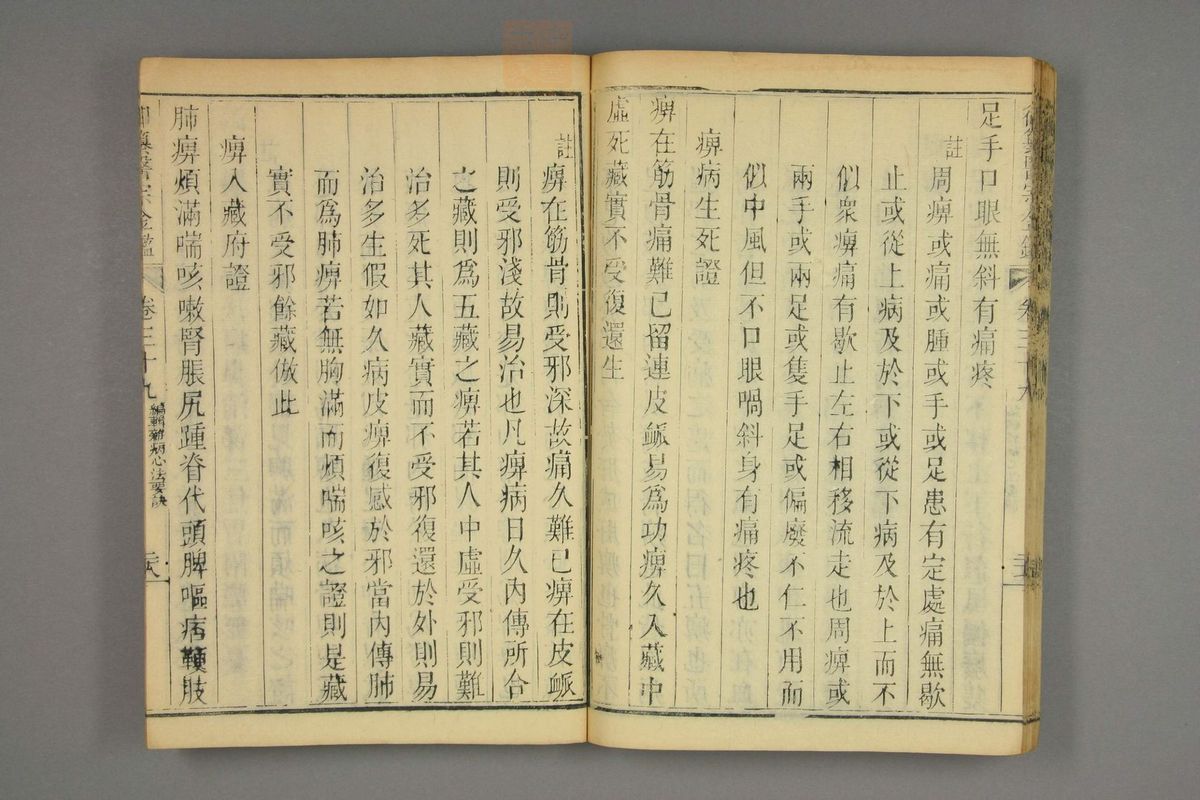 足手口眼無斜有痛疼
註
周痹或痛或腫或手或足患有定處痛無歇
止或從上病及於下或從下病及於上而不
似衆痹痛有歇止左右相移流走也周痹或
兩手或兩足或隻手足或偏廢不仁不用而
似中風但不口眼喎斜身有痛疼也
痹病生死證
痹在筋骨痛難已留連皮脈易爲功痹久入藏中
虛死藏實不受復還生
註
痹在筋骨則受邪深故痛久難已痹在皮脈
則受邪淺故易治也凡痹病日久內傳所合
之藏則爲五藏之痹若其人中虛受邪則難
治多死其人藏實而不受邪復還於外則易
治多生假如久病皮痹復感於邪當內傳肺
而爲肺痹若無胸滿而煩喘咳之證則是藏
實不受邪餘藏倣此
痹入藏府證
肺痹煩滿喘咳嗽腎脹尻踵脊代頭脾嘔痞鞕肢
卷三十九
編輯雜病心法要訣